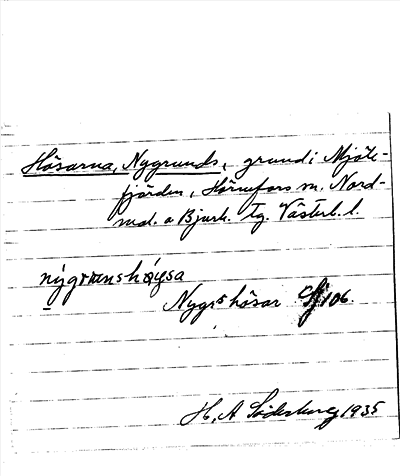 Hösarna, Nygrunds, grund i Mjöle-
fjärden, Hörnefors sn. Nord-
mal. o Bjurh. tg. Västerb. l.
nýgrʉnshøysa
Nygrs hösar Sj 106.
H. A. Söderberg 1935